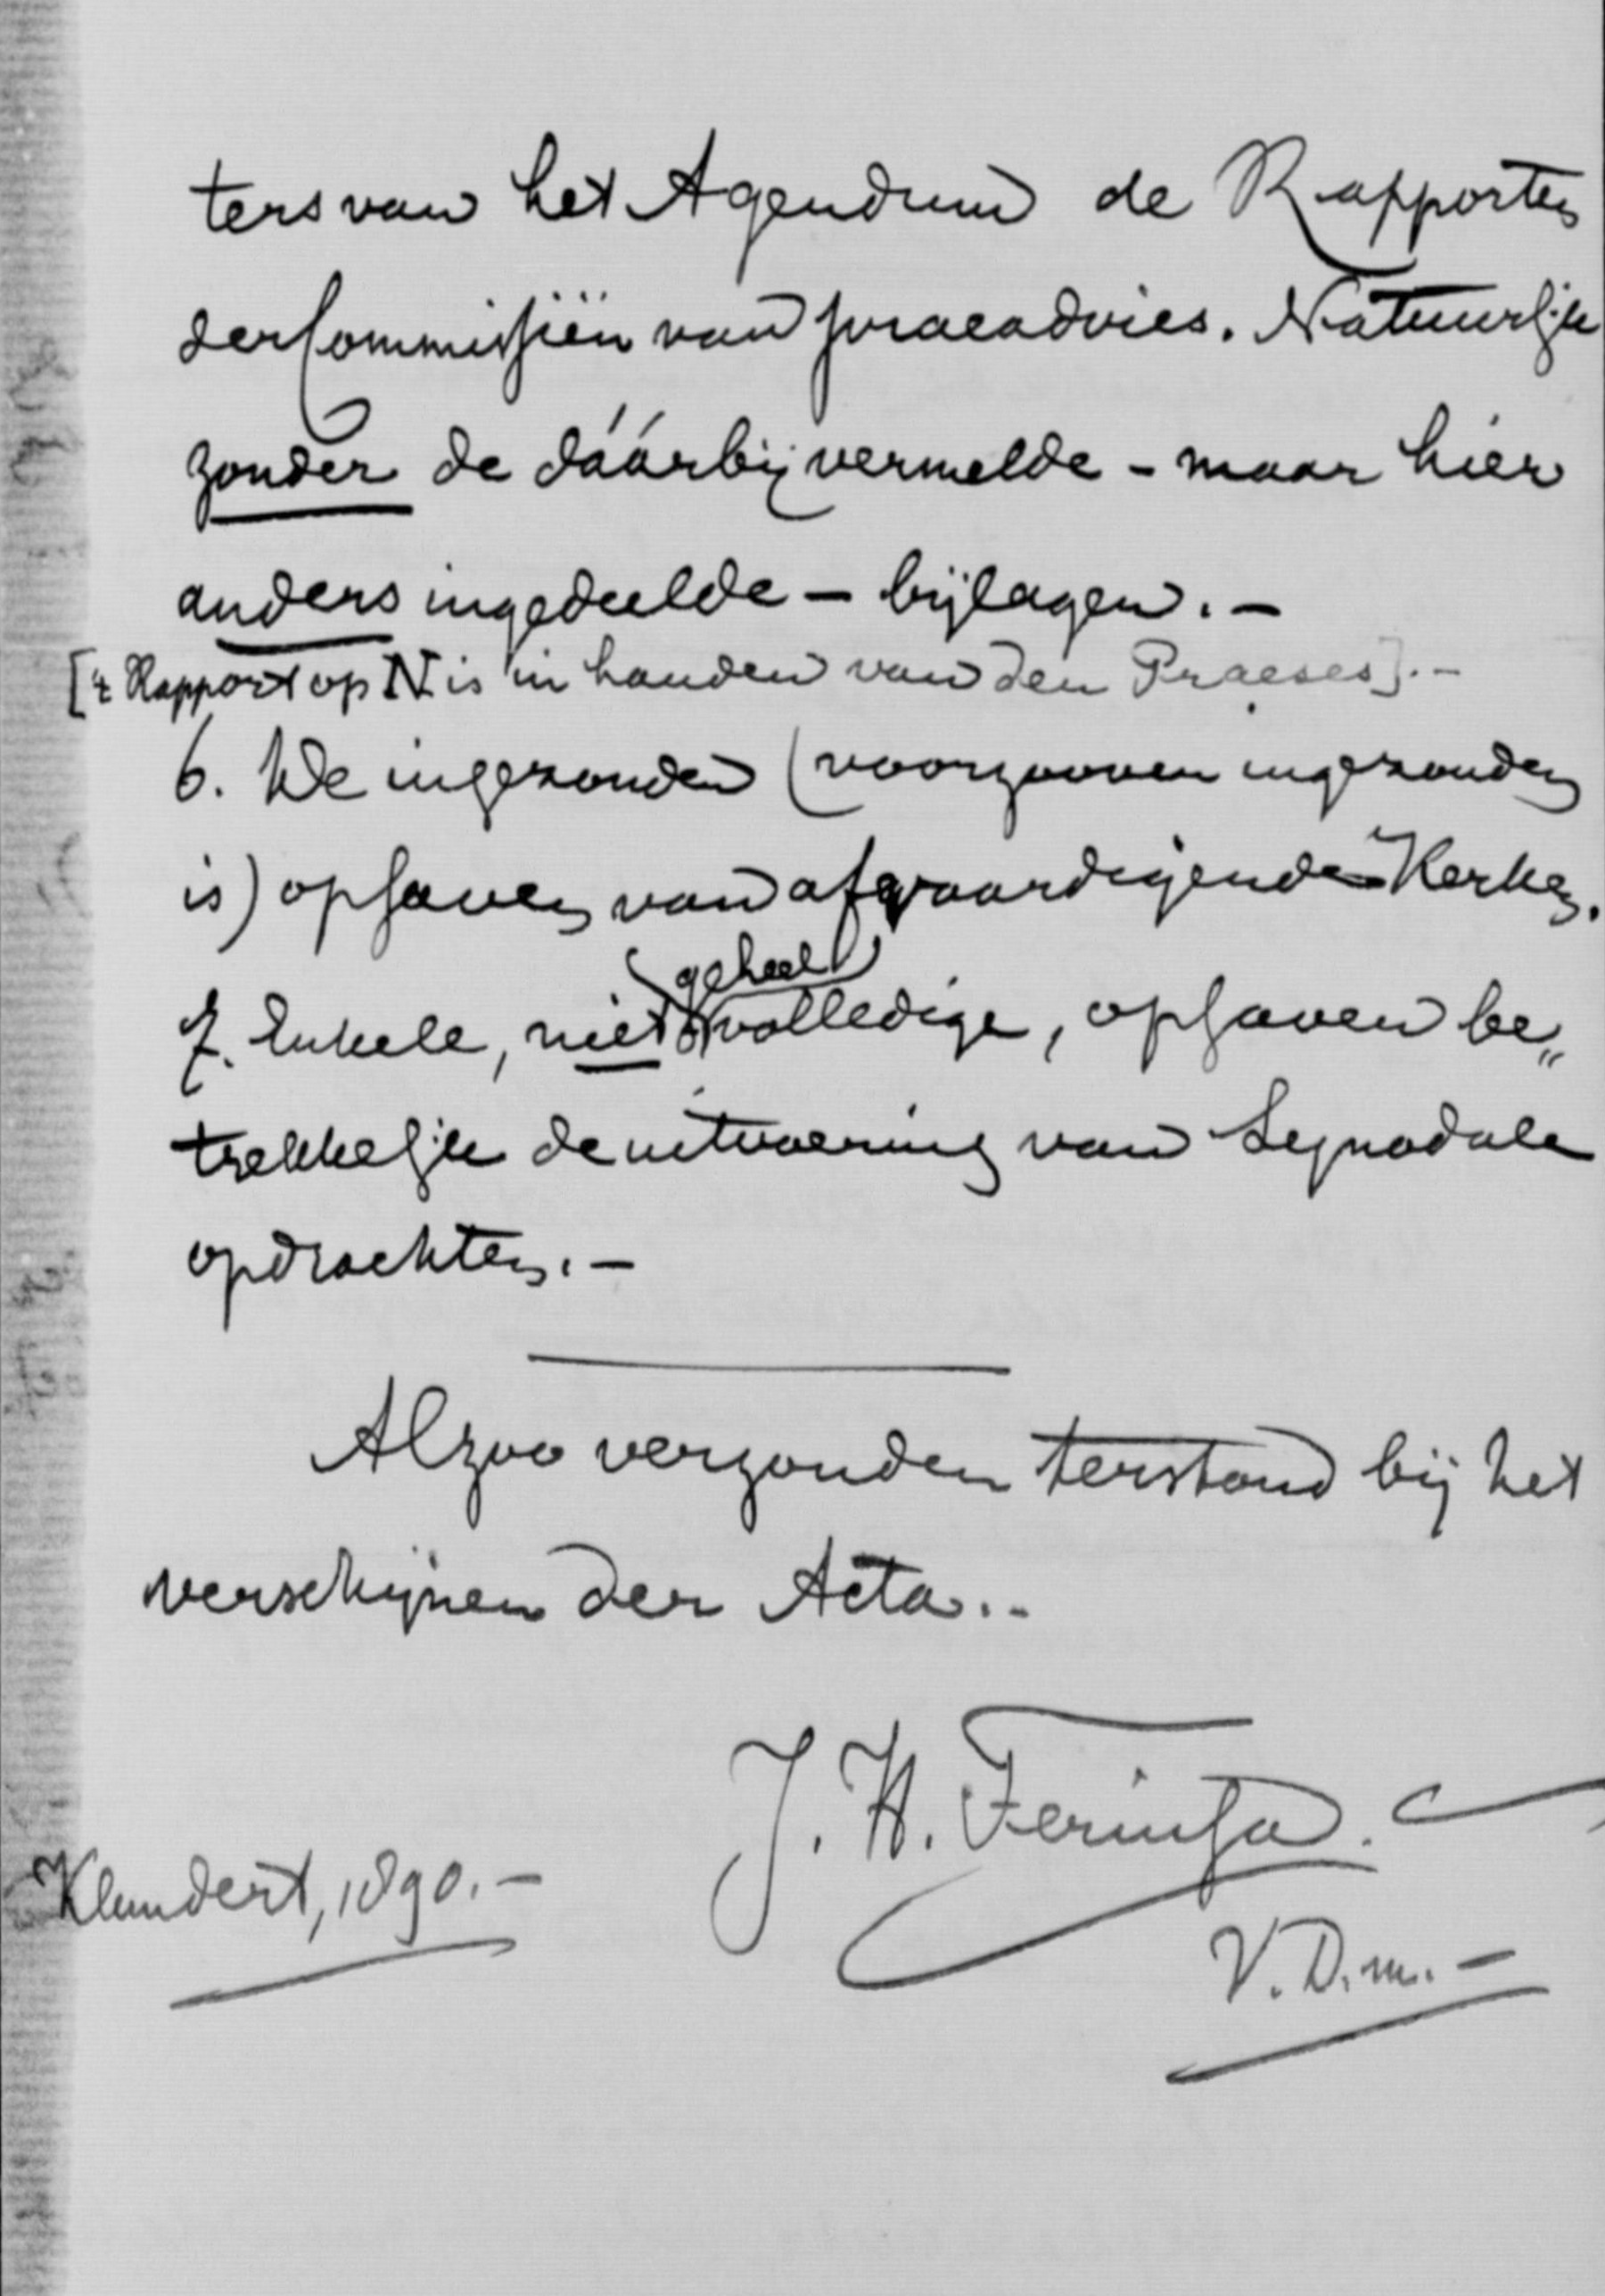 ters van het Agendum de Rapporten
der Commissiën van praeadvies. Natuurlijk
zonder de dáárbij vermelde – maar hier
anders ingedeelde – bijlagen. –
['t Rapport op N is in handen van den Praeses]. –
6. De ingezonden (voorzoover ingezonden
is) opgaven van afvaardigende Kerken.
geheel
7. Enkele, niet volledige, opgaven be„
trekkelijk de uitvoering van Synodale
opdrachten. –
Alzoo verzonden terstond bij het
verschijnen der Acta. –
J. H. Feringa.
Klundert, 1890. –
V. D. m. –